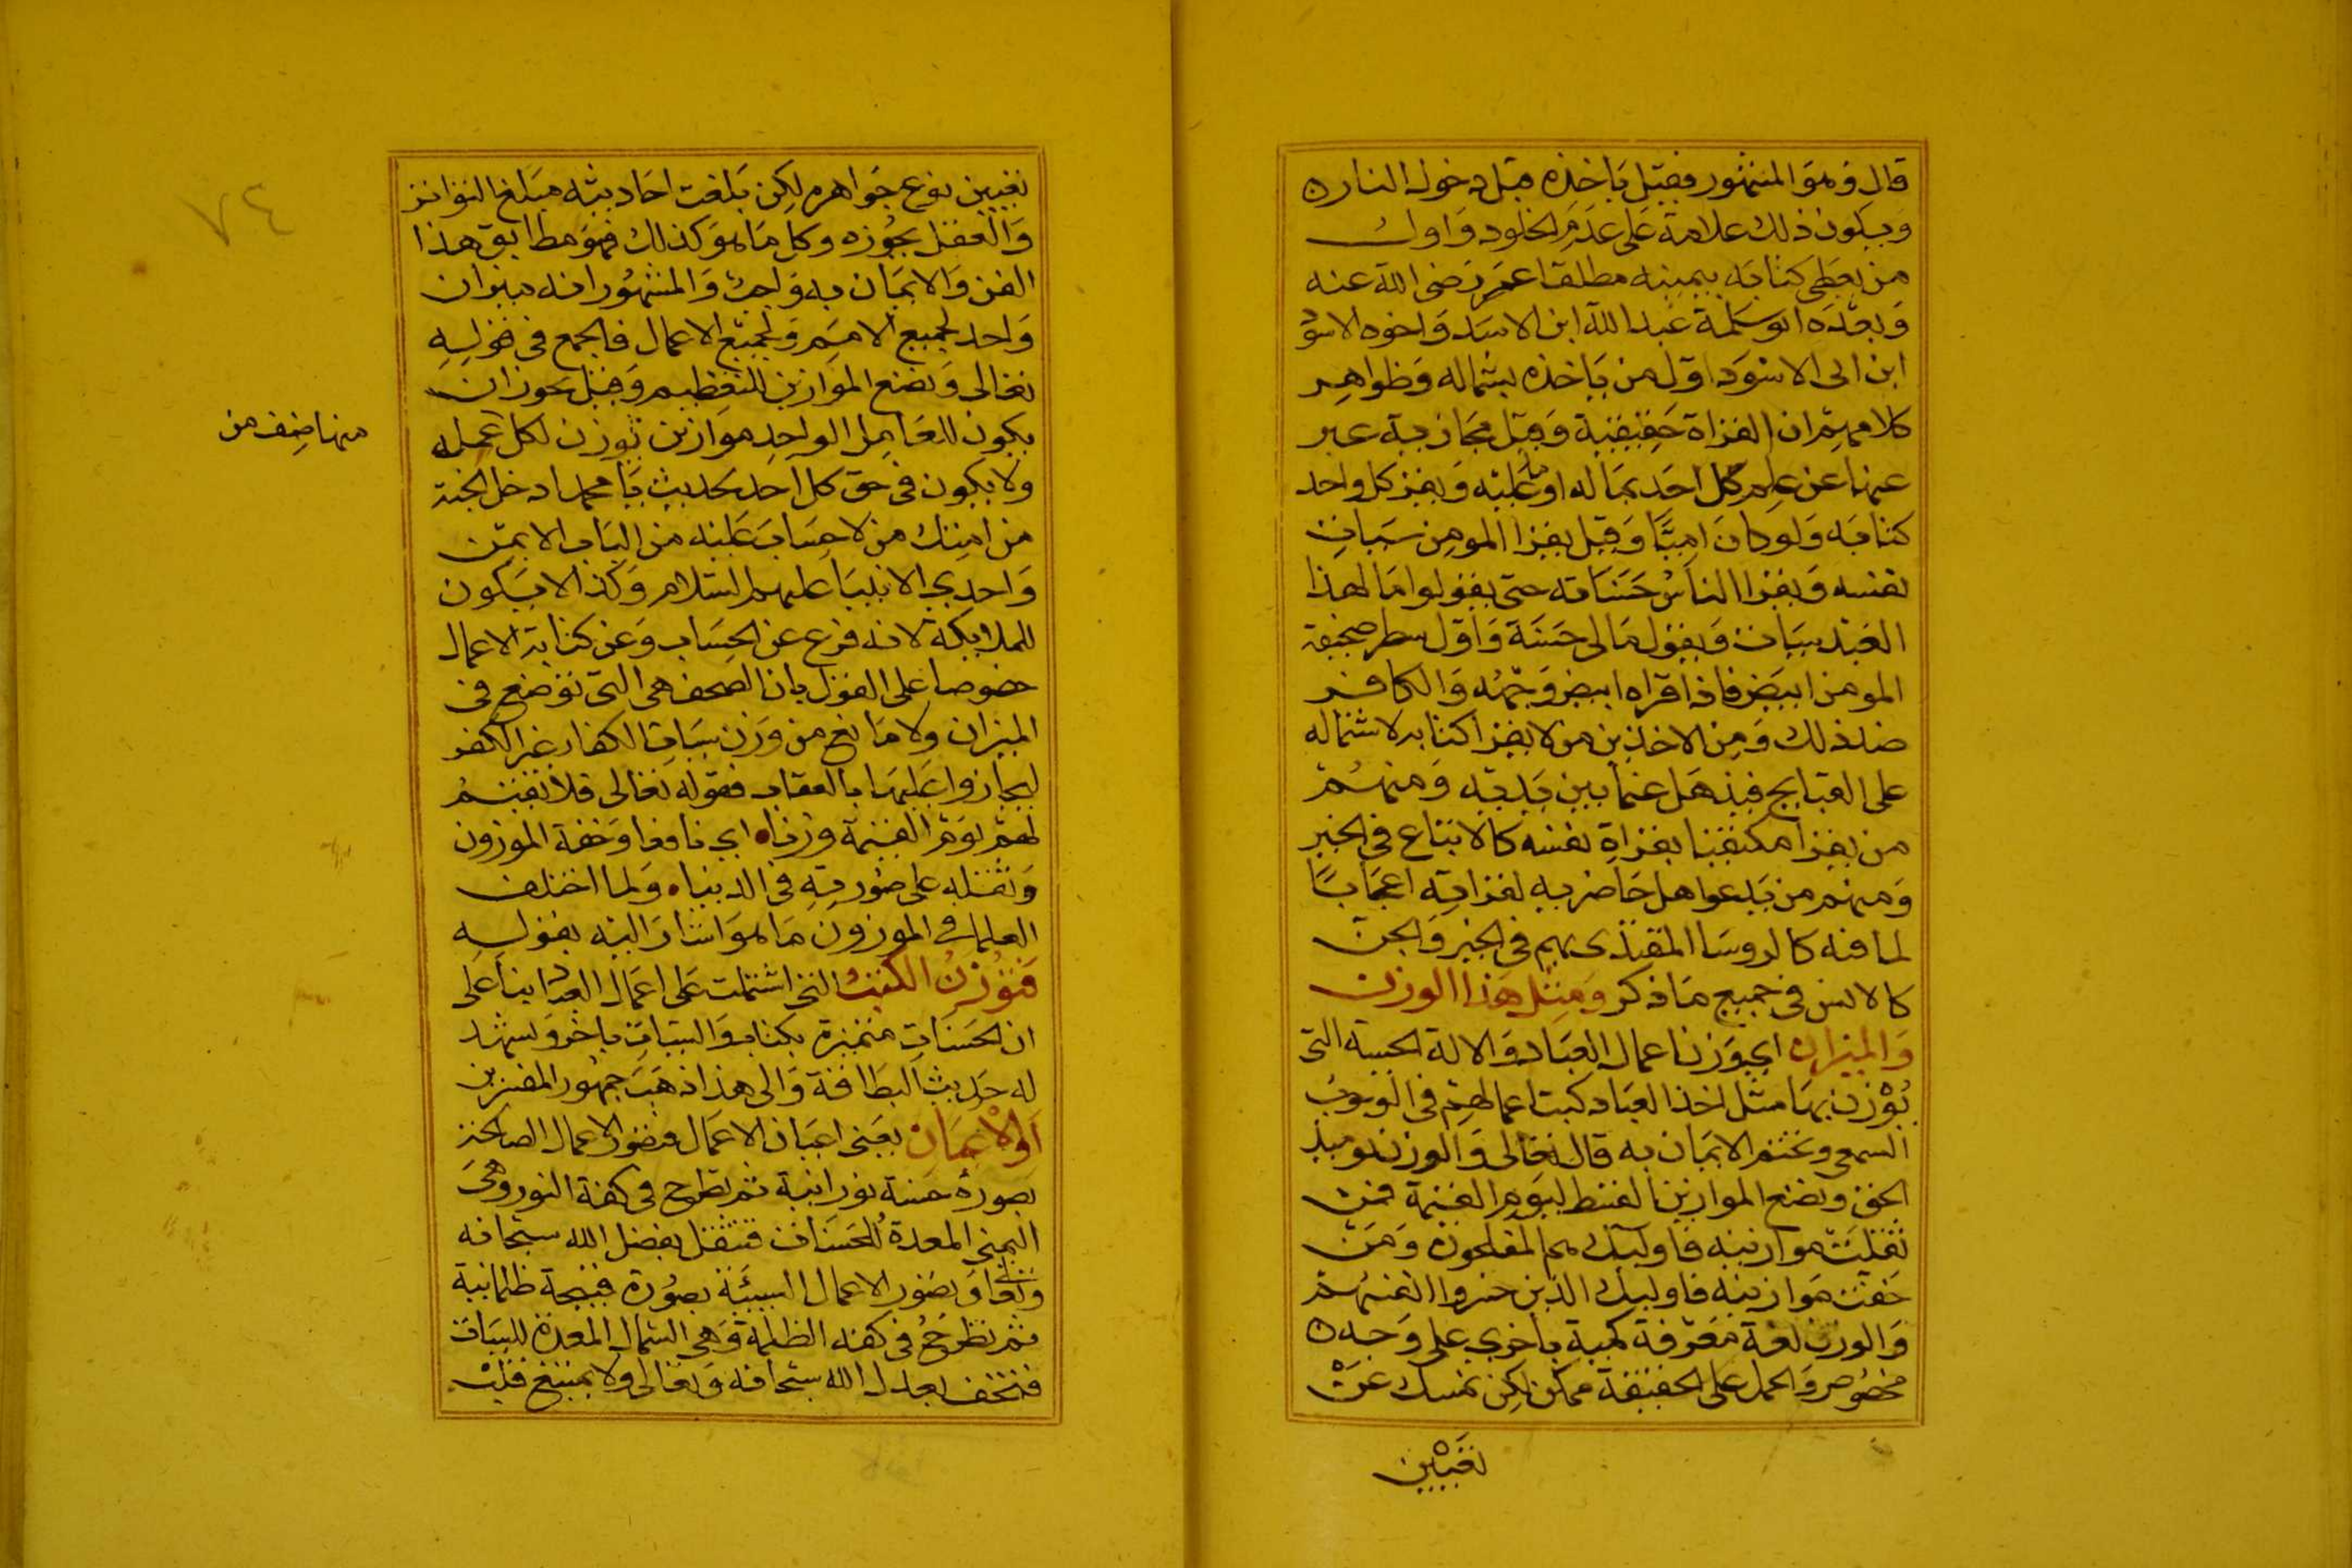 قال وهو المشهور فقيل ياخذه قبل دخول النار
ويكون ذلك علامة على عدم الخلود واول
من يعطى كتابه بيمينه مطلقا عمر رضى الله عنه
وبعده ابو سلمة عبد الله ابن الاسد واخوه الاسود
ابن ابى الاسود اول من ياخذه بشماله وظواهر
كلامهم ان القراة حقيقية وقيل مجازية عبر
عنها عن علم كل احد بماله او ما عليه ويقر كل واحد
كتابه ولو كان اميا وقيل يقرا المومن سيات
نفسه ويقرا الناس حسناته حتى يقولوا ما لهذا
العبد سيات ويقول ما لى حسنة واول سطر صحيفة
المومن ابيض فاذا قراه ابيض وجهه والكافر
ضد ذلك ومن الاخذين من لا يقرا كتابه لاشتماله
على القبايح فيذهل عما بين يديه ومنهم
من يقرا مكتفيا بقراة نفسه كالاتباع فى الخير
ومنهم من يدعوا اهل حاضريه لقراته اعجابا
لما فيه كالروسا المقتدى بهم فى الخير والجن
كالانس فى جميع ما ذكر ومثل هذا الوزن
والميزان اى وزن اعمال العباد والالة الحسية التى
يوزن بها مثل اخذ العباد كتب اعمالهم فى الوجوب
السمعى وتحتم الايمان به قال تعالى والوزن يوميذ
الحق ونضع الموازين القسط ليوم القيمة فمن
ثقلت موازينه فاوليك هم المفلحون ومن
خفت موازينه فاوليك الذين خسروا انفسهم
والوزن لغة معرفة كمية باخرى على وجه
مخصوص والحمل على الحقيقة ممكن لكن نمسك عن
تعيين
٧٤
تعيين نوع جواهره لكن بلغت احاديثه مبلغ التواتر
والعقل يجوزه وكل ما هو كذلك فهو مطابق هذا
الفن والايمان به واجب والمشهور انه ميزان
واحد لجميع الامم ولجميع الاعمال فالجمع فى قوله
تعالى ونضع الموازين للتعظيم وقيل يجوز ان
يكون للعامل الواحد موازين توزن لكل عمله
منها صنف من
ولا يكون فى حق كل احد لحديث يا محمد ادخل الجنة
من امتك من لا حساب عليه من الباب الايمن
واحدى الانبيا عليهم السلام وكذا لا يكون
للملايكة لانه فرع عن الحساب وعن كتابة الاعمال
خصوصا على القول بان الصحف هى التى توضع فى
الميزان ولا مانع من وزن سيات الكفار غير الكفر
ليجازوا عليها بالعقاب فقوله تعالى فلا نقيم
لهم يوم القيمة وزنا اى نافعا وخفة الموزون
وثقله على صورته فى الدنيا ولما اختلف
العلما فى الموزون ما هو اشار اليه بقوله
فتوزن الكتب التى اشتملت على اعمال العباد بنا على
ان الحسنات متميزة بكتاب والسيات باخر ويشهد
له حديث البطاقة والى هذا ذهب جمهور المفسرين
او الاعيان يعنى اعيان الاعمال فتصور الاعمال الصالحة
بصورة حسنة نورانية ثم تطرح فى كفة النور وهى
اليمنى المعدة للحسنات فتثقل بفضل الله سبحانه
وتعالى وتصور الاعمال السيئة بصورة قبيحة ظلمانية
ثم تطرح فى كفه الظلمة وهى الشمال المعدة للسيات
فتخف بعدل الله سبحانه وتعالى ولا يمتنع قلب